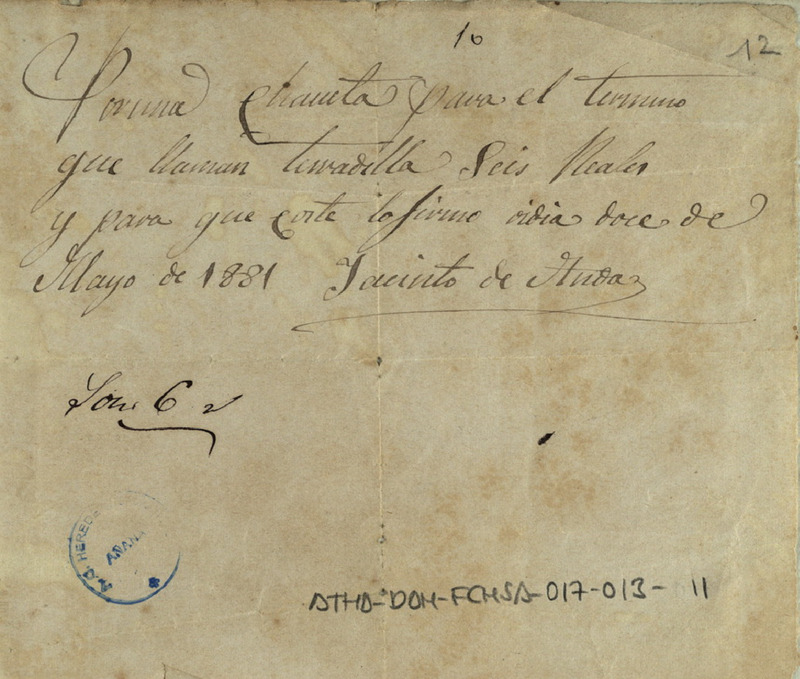 16
12
Por una Chaveta para el termino
que llaman terradilla Seis Reales
y para que coste lo firmo oidia doce de
Mayo de 1881 Jacinto de Anda
Son 6 r
HEREDE
AÑANA
ATHA-DAH-FCHSA-017-013-11